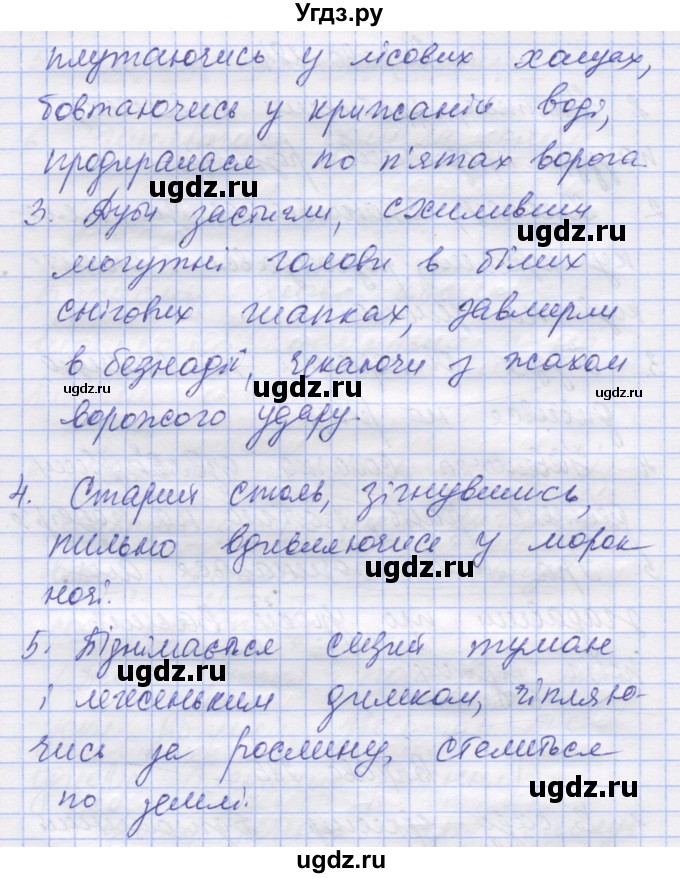 Угдз.ру
плутаючись у лісових хащах,
бовтаючись у крижаній воді,
продиралася по п'ятах ворога.
ugdz.ru
3. Дуби застигли, схиливши
ugdz.ru
могутні голови в білих
снігових шапках, завмерли
в безнадії, чекаючи з жахом
ugdz.ru ugdz.ru ugdz.ru
ворожого удару.
4. Старий стояв, зігнувшись,
пильно вдивляючись у морок
ugdz.ru
ночі.
5. Віднімається сизий туман
ugdz.ru
і легесеньким димком, чіпляю-
чись за рослину, стелиться
ugdz.ru
по землі.
ugdz.ru
ugdz.ru